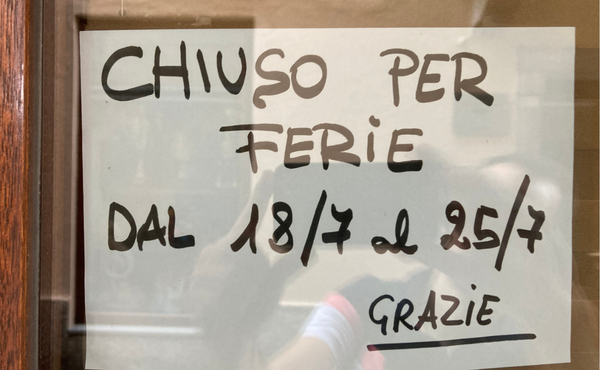 CHIUSO PER
FERIE
DAL 18/7 al 25/7
GRAZIE